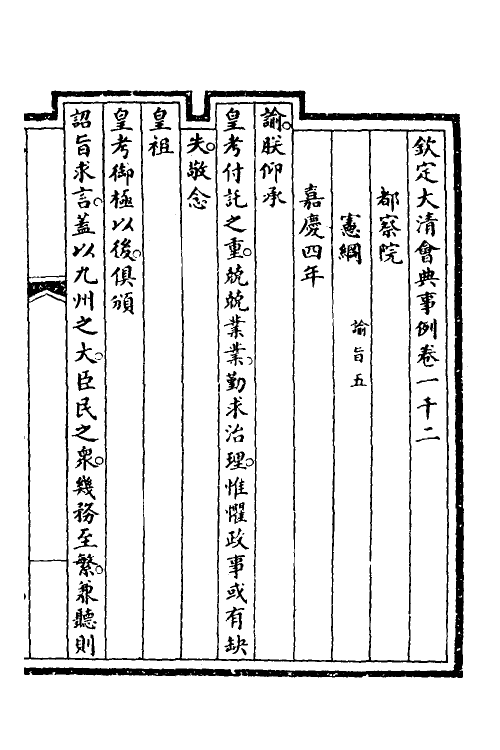 欽定大清會典事例卷一千二
都察院
憲綱 諭旨五
嘉慶四年
諭。朕仰承
皇考付託之重。兢兢業業。勤求治理。惟懼政事或有缺
失。敬念
皇祖
皇考御極以後。俱頒
詔旨求言。蓋以九州之大。臣民之衆。幾務至繁。兼聽則